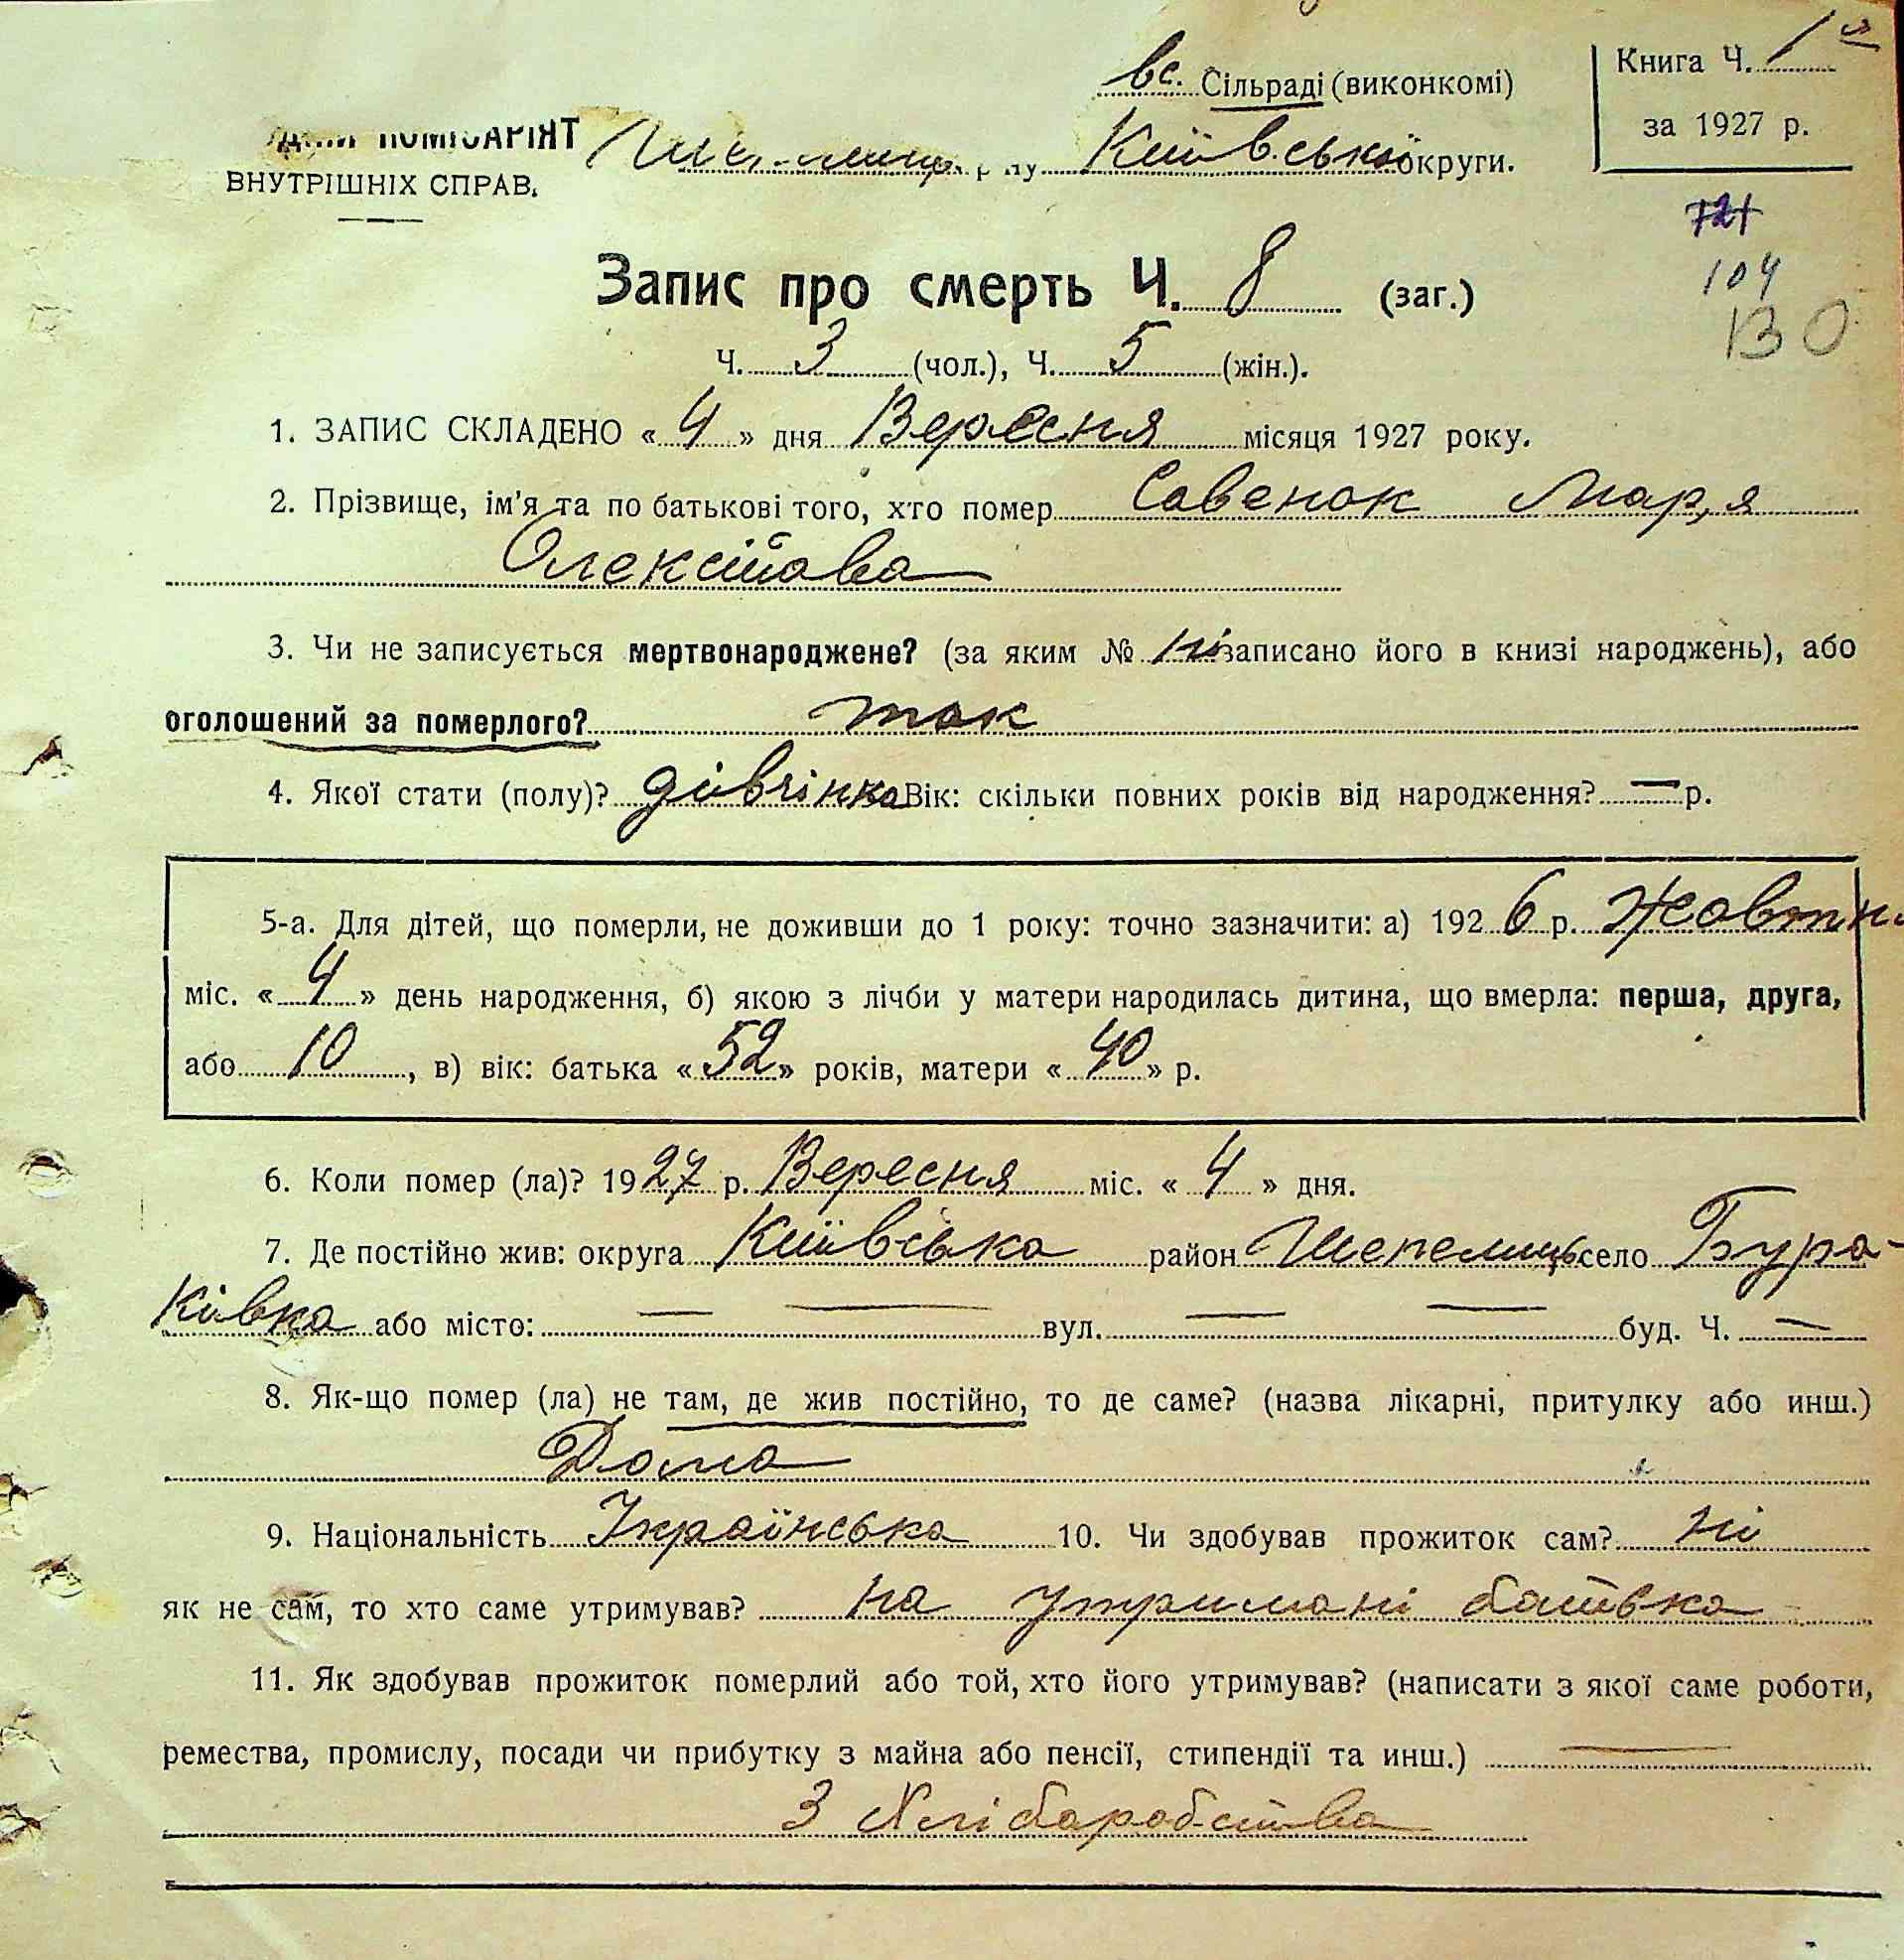 вс. Сільраді (виконкомі)
Книга Ч. 1
за 1927 р.
КОМІСАРІЯТ
ВНУТРІШНІХ СПРАВ.
Київської округи.
721
104
130
Запис про смерть Ч. 8 (заг.)
Ч. 3 (чол.), Ч. 5 (жін.).
1. ЗАПИС СКЛАДЕНО «4» дня Вересня місяця 1927 року.
2. Прізвище, ім'я та по батькові того, хто помер Савенок Марія
Олексійова
3. Чи не записується мертвонароджене? (за яким № ні записано його в книзі народжень), або
оголошений за померлого? так
4. Якої стати (полу)? дівчінка Вік: скільки повних років від народження? — р.
5-а. Для дітей, що померли, не доживши до 1 року: точно зазначити: а) 1926 р. Жовтн.
міс. «4» день народження, б) якою з лічби у матери народилась дитина, що вмерла: перша, друга,
або 10, в) вік: батька «52» років, матери «40» р.
6. Коли помер (ла)? 1927 р. Вересня міс. «4» дня.
7. Де постійно жив: округа Київська район Шепелицьк село Бура-
ківка або місто: — — вул. — — буд. Ч. —
8. Як-що помер (ла) не там, де жив постійно, то де саме? (назва лікарні, притулку або инш.)
Дома
9. Національність Українська 10. Чи здобував прожиток сам? ні
як не сам, то хто саме утримував? на утримані батька
11. Як здобував прожиток померлий або той, хто його утримував? (написати з якої саме роботи,
ремества, промислу, посади чи прибутку з майна або пенсії, стипендії та инш.) —
З Хлібаробства